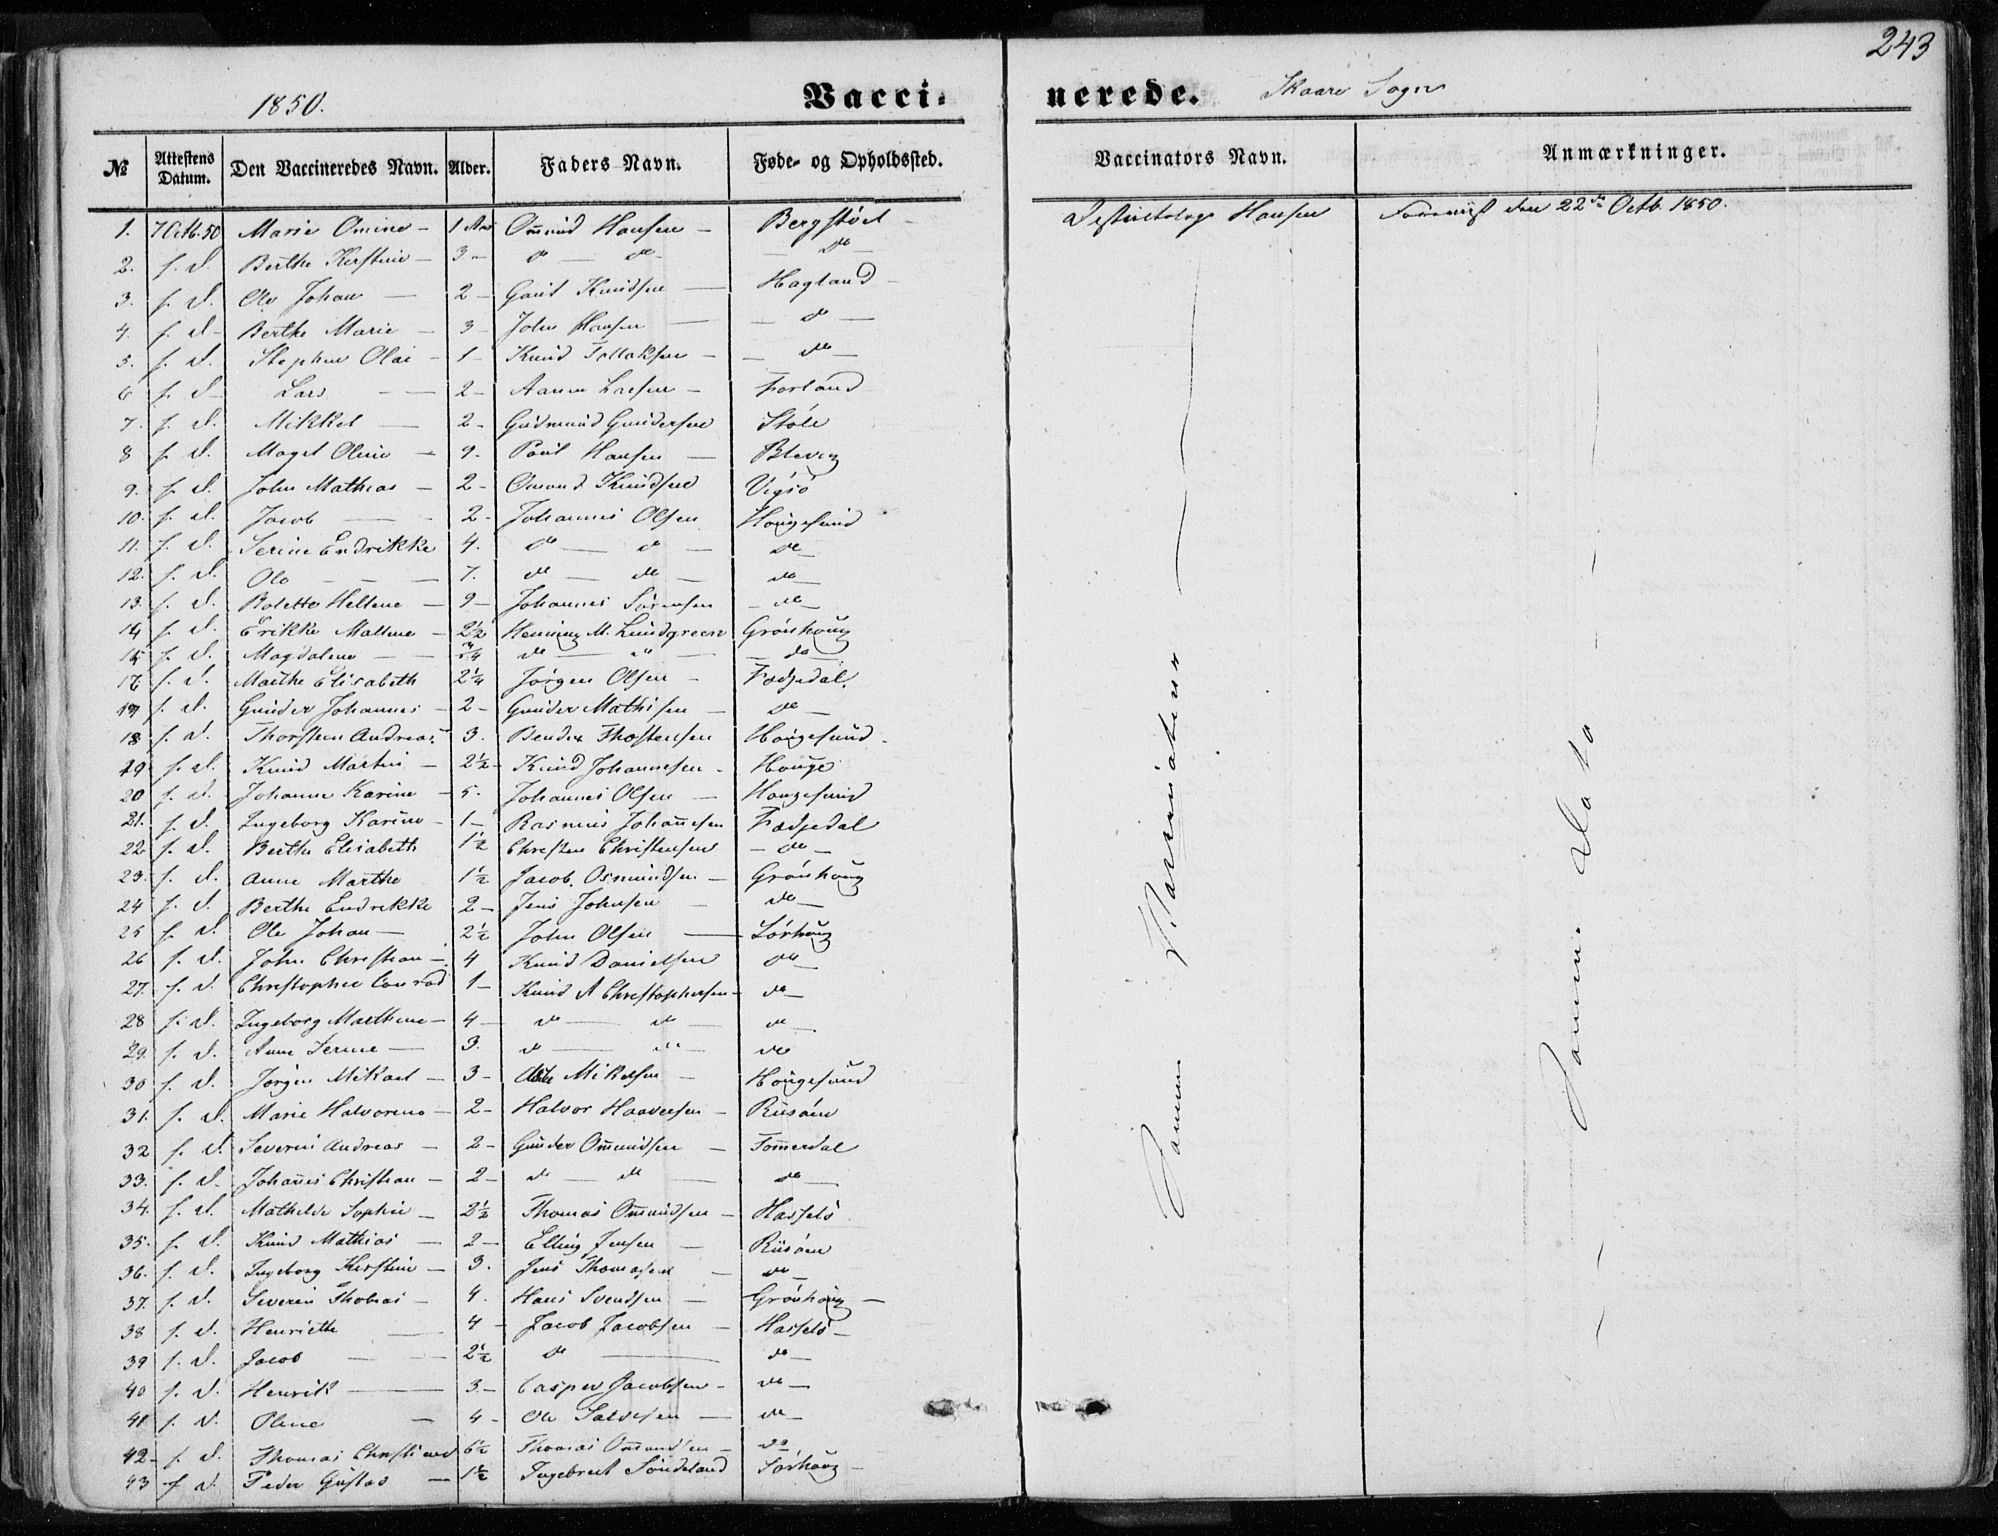 243
1850. Vacci- nerede. Skaare Sogn
№ Attestens Datum. Den Vaccineredes Navn. Alder. Faders Navn. Føde- og Opholdssted. Vaccinators Navn. Anmærkninger.
1. 7 Octb. 50 Marie Omine – 1 Aar Omund Hansen – Bergstøel Hansen Foreviist den 22de Octb. 1850.
2. f. d. Berthe Kirstine – 3 – do — do – — do —
3. f. d. Ole Johan — 2 – Knudsen — Hagland –
4. f. d. Berthe Marie – 3 – John Hansen — — do —
5. f. d. Stephen Olai – 1 – Knud Tollaksen – — do —
6 f. d. Lars — — 2 – Larsen – Førland
7. f. d. Mikkel — 2 – Gudmund Gundersen Støle
8 f. d. Magel Oline – 9. Poul Hansen — Bleveg
9. f. d. John Mathias – 2 – Omund Knudsen
10. f. d. Jacob — – 2 – Johannes Olsen Hougesund
11. f. d. Serine Endrikke 4. do — do — do —
12. f. d. Ole — — – 7. do — do — do —
13. f. d. Bolette Hellene – 9 – Johannes Sørensen — do —
14 f. d. Erikke Mallene – 2½ Henning M. Lundgreen Grønhoug
15 f. d. Magdalene — — ¾ do — " — — do —
16 f. d. Marthe Elisabeth 2¼ Jørgen Olsen – Fædjedal.
17 f. d. Gunder Johannes – 2 – Gunder Mathisen – do —
18 f. d. Thorsten Andreas 3. Bendix Thostensen Hougesund –
19 f. d. Knud Martin – 2½ – Knud Johannesen – Houge
20 f. d. Johanne Karine – 5. Johannes Olsen — Hougesund
21. f. d. Ingeborg Karine – 1 – Rasmus Johannesen Fædjedal
22 f. d. Berthe Elisabeth 1½ Christen Christensen — do —
23. f. d. Anne Marthe 1½ Jacob Osmundsen – Grønhoug
24 f. d. Berthe Endrikke 2 – Jens Johnsen – do —
25 f. d. Ole Johan – 2½ John Olsen — Sørhoug
26 f. d. John Christian – 4 Knud Danielsen do —
27. f. d. Christopher Conrad 1 – Knud A Christophersen – do —
28 f. d. Ingeborg Marthine – 4 – do — do — do —
29. f. d. Anne Serine — 3. do — do — do
30 f. d. Jørgen Mikael – 3 – Mikelsen – Hougesund
31. f. d. Marie Halvorine – 2 – Halvor Haaversen – Risøen
32 f. d. Severin Andreas – 2 – Gunder Omundsen – Tommerdal
33. f. d. Johannes Christian – 2 – do — do — do —
34. f. d. Mathilde Sophie – 2½ Thomas Omundsen – Hasselø
35. f. d. Knud Mathias – 2 – Elling Jensen – Risøen
36. f. d. Ingeborg Kirstine – 3. Jens Thomasen – do —
37. f. d. Severin Thobias – 4. Hans Svendsen – Grønhoug —
38 f. d. Henriette — 4 – Jacob Jacobsen – Hasselø –
39 f. d. Jacob — — 2½ do — do —
40 f. d. Henrik — 3. – Casper Jacobsen – do —
41 f. d. Oline – 4 – Ole Salvesen — do —
42 – f. d. Thomas Christian 6½ Thomas Omundsen – do
43 f. d. Peder Gustav – 1½ Ingebret Søndeland Sørhoug –
Samme Vaccinateur
Samme Dato